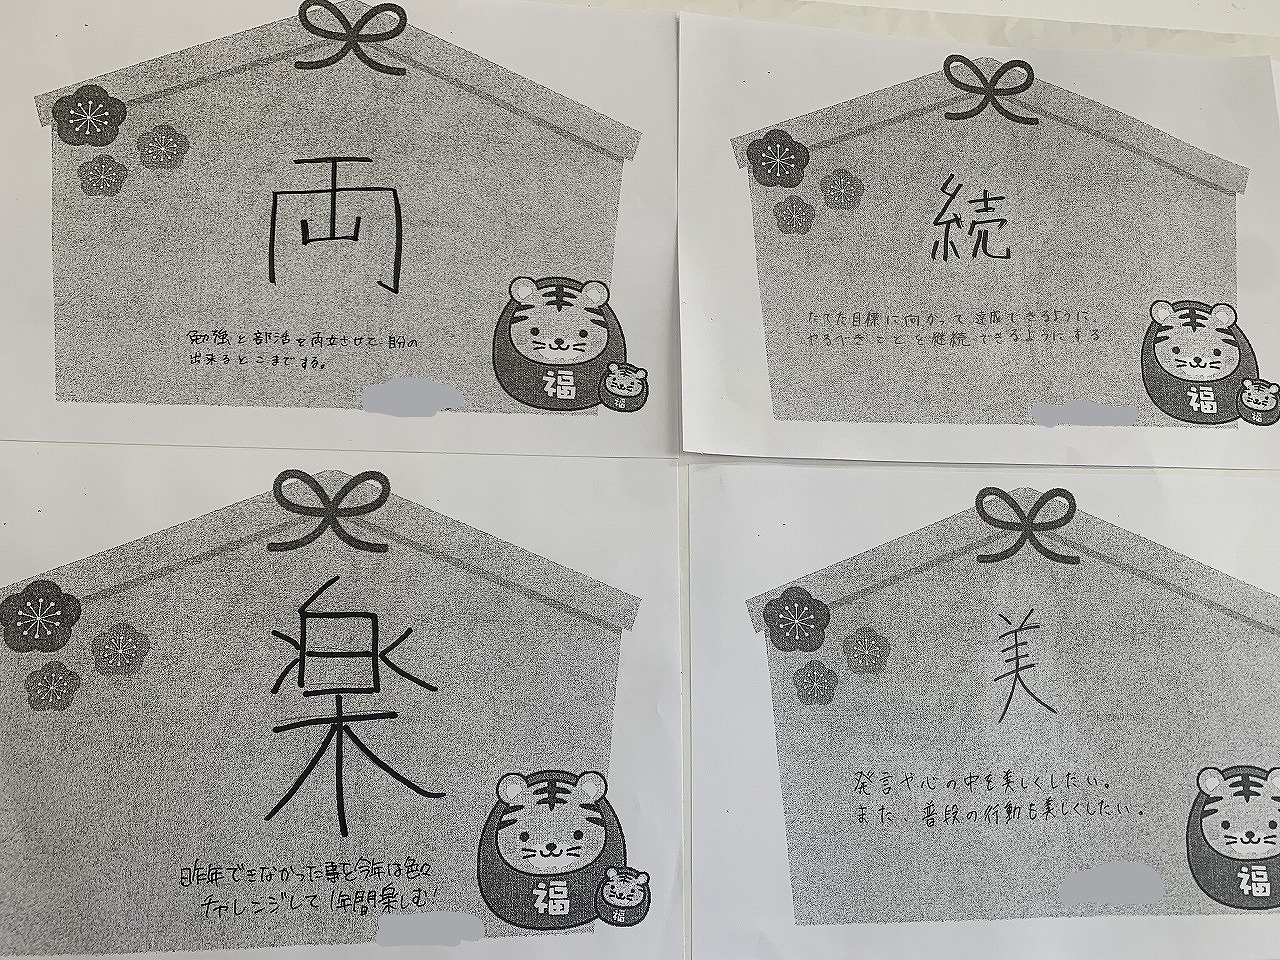 両
勉強と部活を両立させて自分の
出来るとこまでする。
福
福
続
たてた目標に向かって達成できるように
やるべきことを継続できるようにする
福
福
楽
昨年できなかった事を今年は色々
チャレンジして1年間楽しむ!
福
福
美
発言や心の中を美しくしたい。
また、普段の行動も美しくしたい。
福